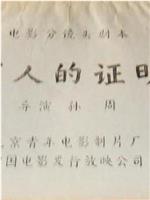 电影分镜头剧本
人的证明
导演 孙周
京青年电影制片厂
国电影发行放映公司